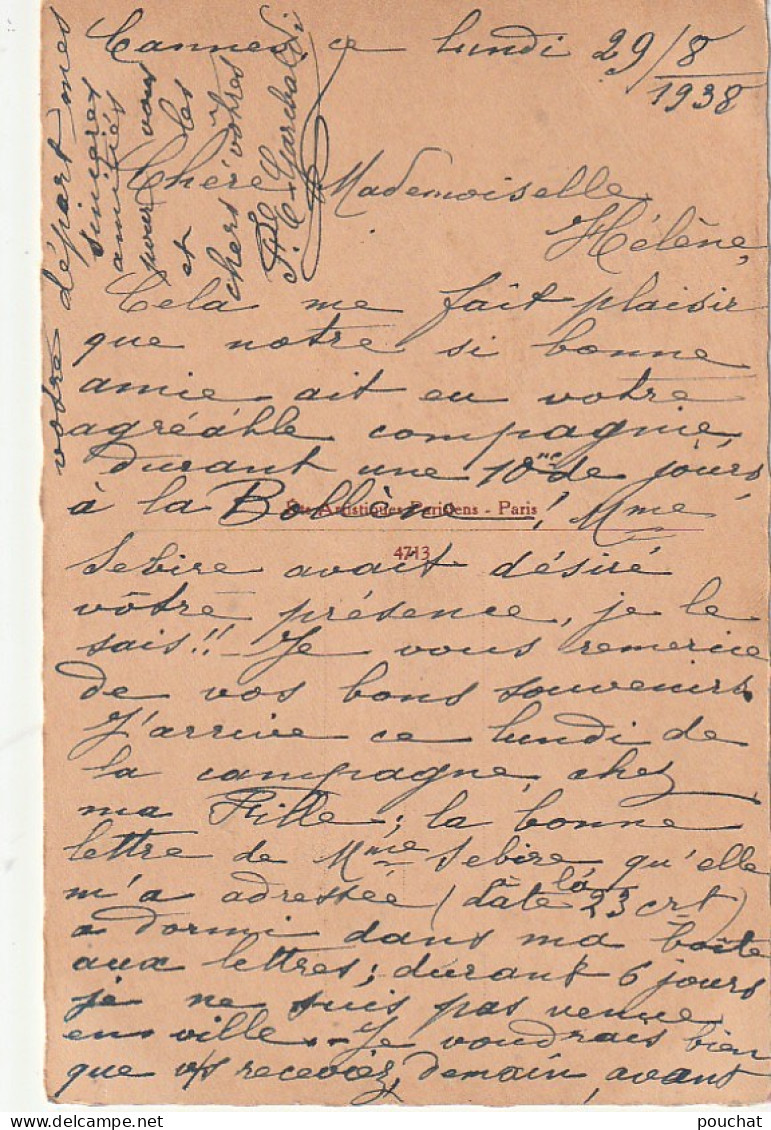 Cannes, ce lundi 29/8
1938
Chère Mademoiselle
Hélène,
Cela me fait plaisir
que notre si bonne
amie ait eu votre
agréable compagnie,
durant une 10ne de jours
à la Bollène ! Mme
Ets Artistiques Parisiens - Paris
4713
Sebire avait désiré
vôtre présence, je le
sais!! Je vous remercie
de vos bons souvenirs.
J'arrive ce lundi de
la campagne, chez
ma Fille; la bonne
lettre de Mme Sebire, qu'elle
m'a adressée (datée la 23 crt)
a dormi dans ma boîte
aux lettres; durant 6 jours
je ne suis pas venue
en ville. - Je voudrais bien
que v/s receviez, demain, avant
votre départ mes
sincères
amitiés
pour vous
et les
chers vôtres
pouchat